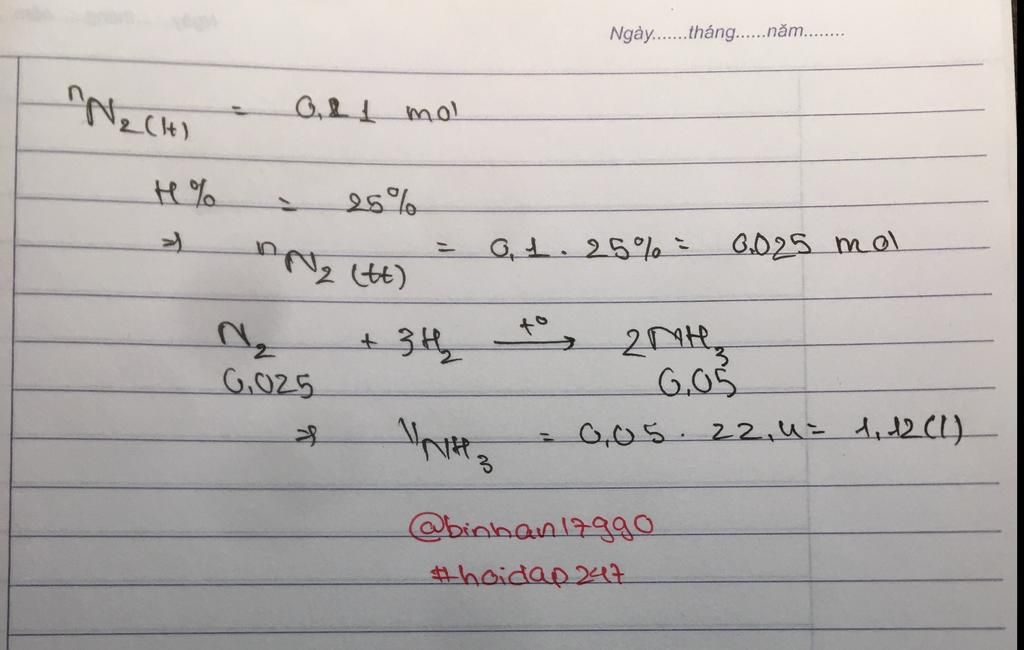 Ngày.......tháng......năm........
nN2(lt) = 0,1 mol
H% = 25%
=> nN2(tt) = 0,1 . 25% = 0.025 mol
N2 + 3H2 t° → 2NH3
0,025 0,05
=> VNH3 = 0,05 . 22,4 = 1,12(l)
@binhan17990
#hoidap247